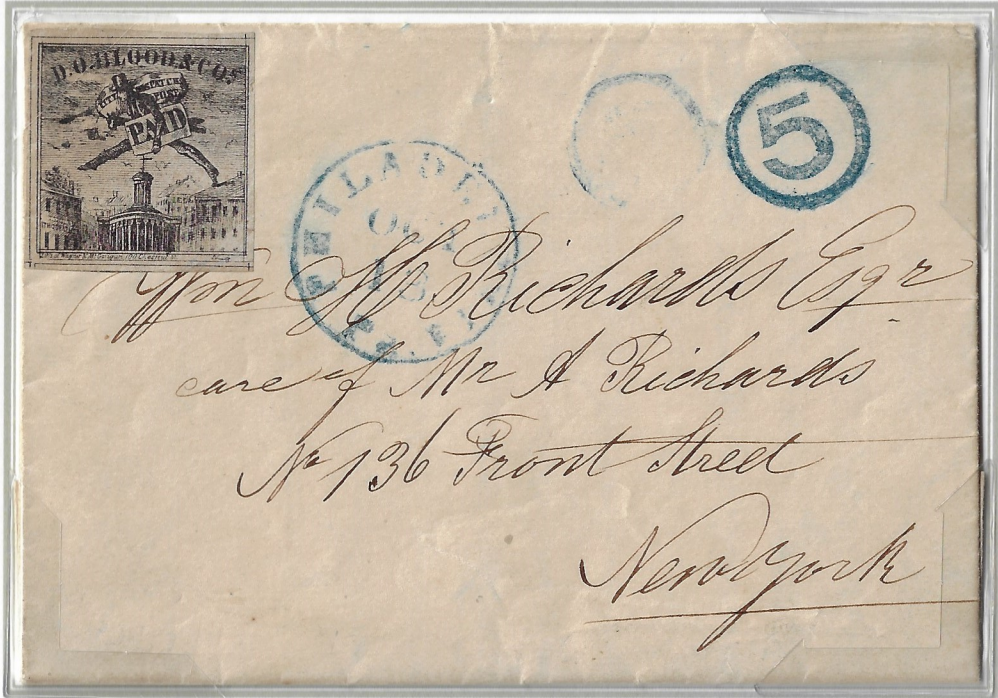 D.O.BLOOD & CO'S
CITY
POST
PAID
5
PHILADELPHIA Pa.
OCT
18
Wm H Richards Esqr
care of Mr A Richards
No 136 Front Street
New York